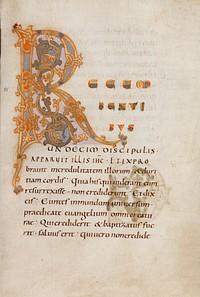 R ECUM
BENTI
BUS
UNDECIM DISCIPULIS
APPARUIT ILLIS IHC ET EXPRO
brauit incredulitatem illorum & duri
tiam cordis. Quia his qui uiderant eum
resurrexisse. non crediderunt. Et dixit
eis. Euntes in mundum uniuersum
praedicate euangelium omni creatu
rae. Qui crediderit. & baptizatus fue
rit. saluus erit. qui uero non credide